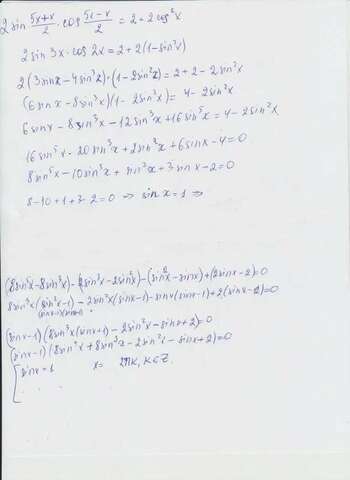 2 sin (5x+x)/2 · cos (5x-x)/2 = 2+2cos²x
2 sin 3x · cos 2x = 2+2(1-sin²x)
2(3sinx-4sin³x)·(1-2sin²x)=2+2-2sin²x
(6sinx-8sin³x)(1-2sin²x)=4-2sin²x
6sinx-8sin³x-12sin³x+16sin⁵x=4-2sin²x
16sin⁵x-20sin³x+2sin²x+6sinx-4=0
8sin⁵x-10sin³x+sin²x+3sinx-2=0
8-10+1+3-2=0 ⇒ sinx=1 ⇒
(8sin⁵x-8sin³x)-(2sin³x-2sin²x)-(sin²x-sinx)+(2sinx-2)=0
8sin³x(sin²x-1)-2sin²x(sinx-1)-sinx(sinx-1)+2(sinx-1)=0
(sinx-1)(sinx+1)
(sinx-1)(8sin³x(sinx+1)-2sin²x-sinx+2)=0
(sinx-1)(8sin⁴x+8sin³x-2sin²x-sinx+2)=0
sinx=1 x= 2πk, k∈Z